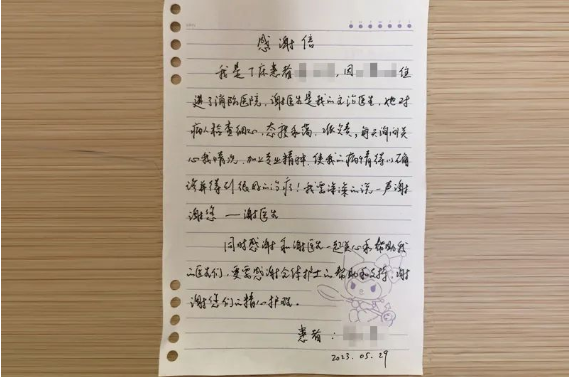 感谢信
我是丁床患者 ，因 住
进了消防医院，谢医生是我的主治医生，他对
病人检查细心，态度和蔼，
心我情况，加上专业精神，使我的病情得以确
诊并得到很好的治疗！我需深深的说一声谢
谢您 — 谢医生
同时感谢和谢医生一起关心和帮助我
的医生们，更要感谢全体护士的帮助和支持，谢
谢您们的精心护理。
患者：
2023.05.29